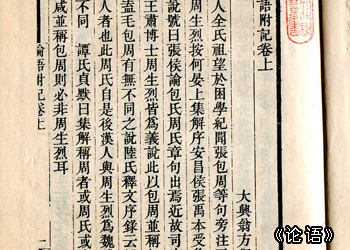 語附記卷上
大興翁方
人全氏祖望於困學紀聞張包周等句旁注
周生烈按何晏上集解序安昌侯張禹本受
說號曰張侯論包氏周氏章句出焉近故司
王肅博士周生烈皆為義說此以包周並稱
孟毛包周有無不同之說陸氏釋文序錄云
人者也此周氏自是後漢人與周生烈為魏
不同 譚氏貞默曰集解稱周者或周氏或
咸並稱包周則必非周生烈耳
論語附記卷上
二
《论语》